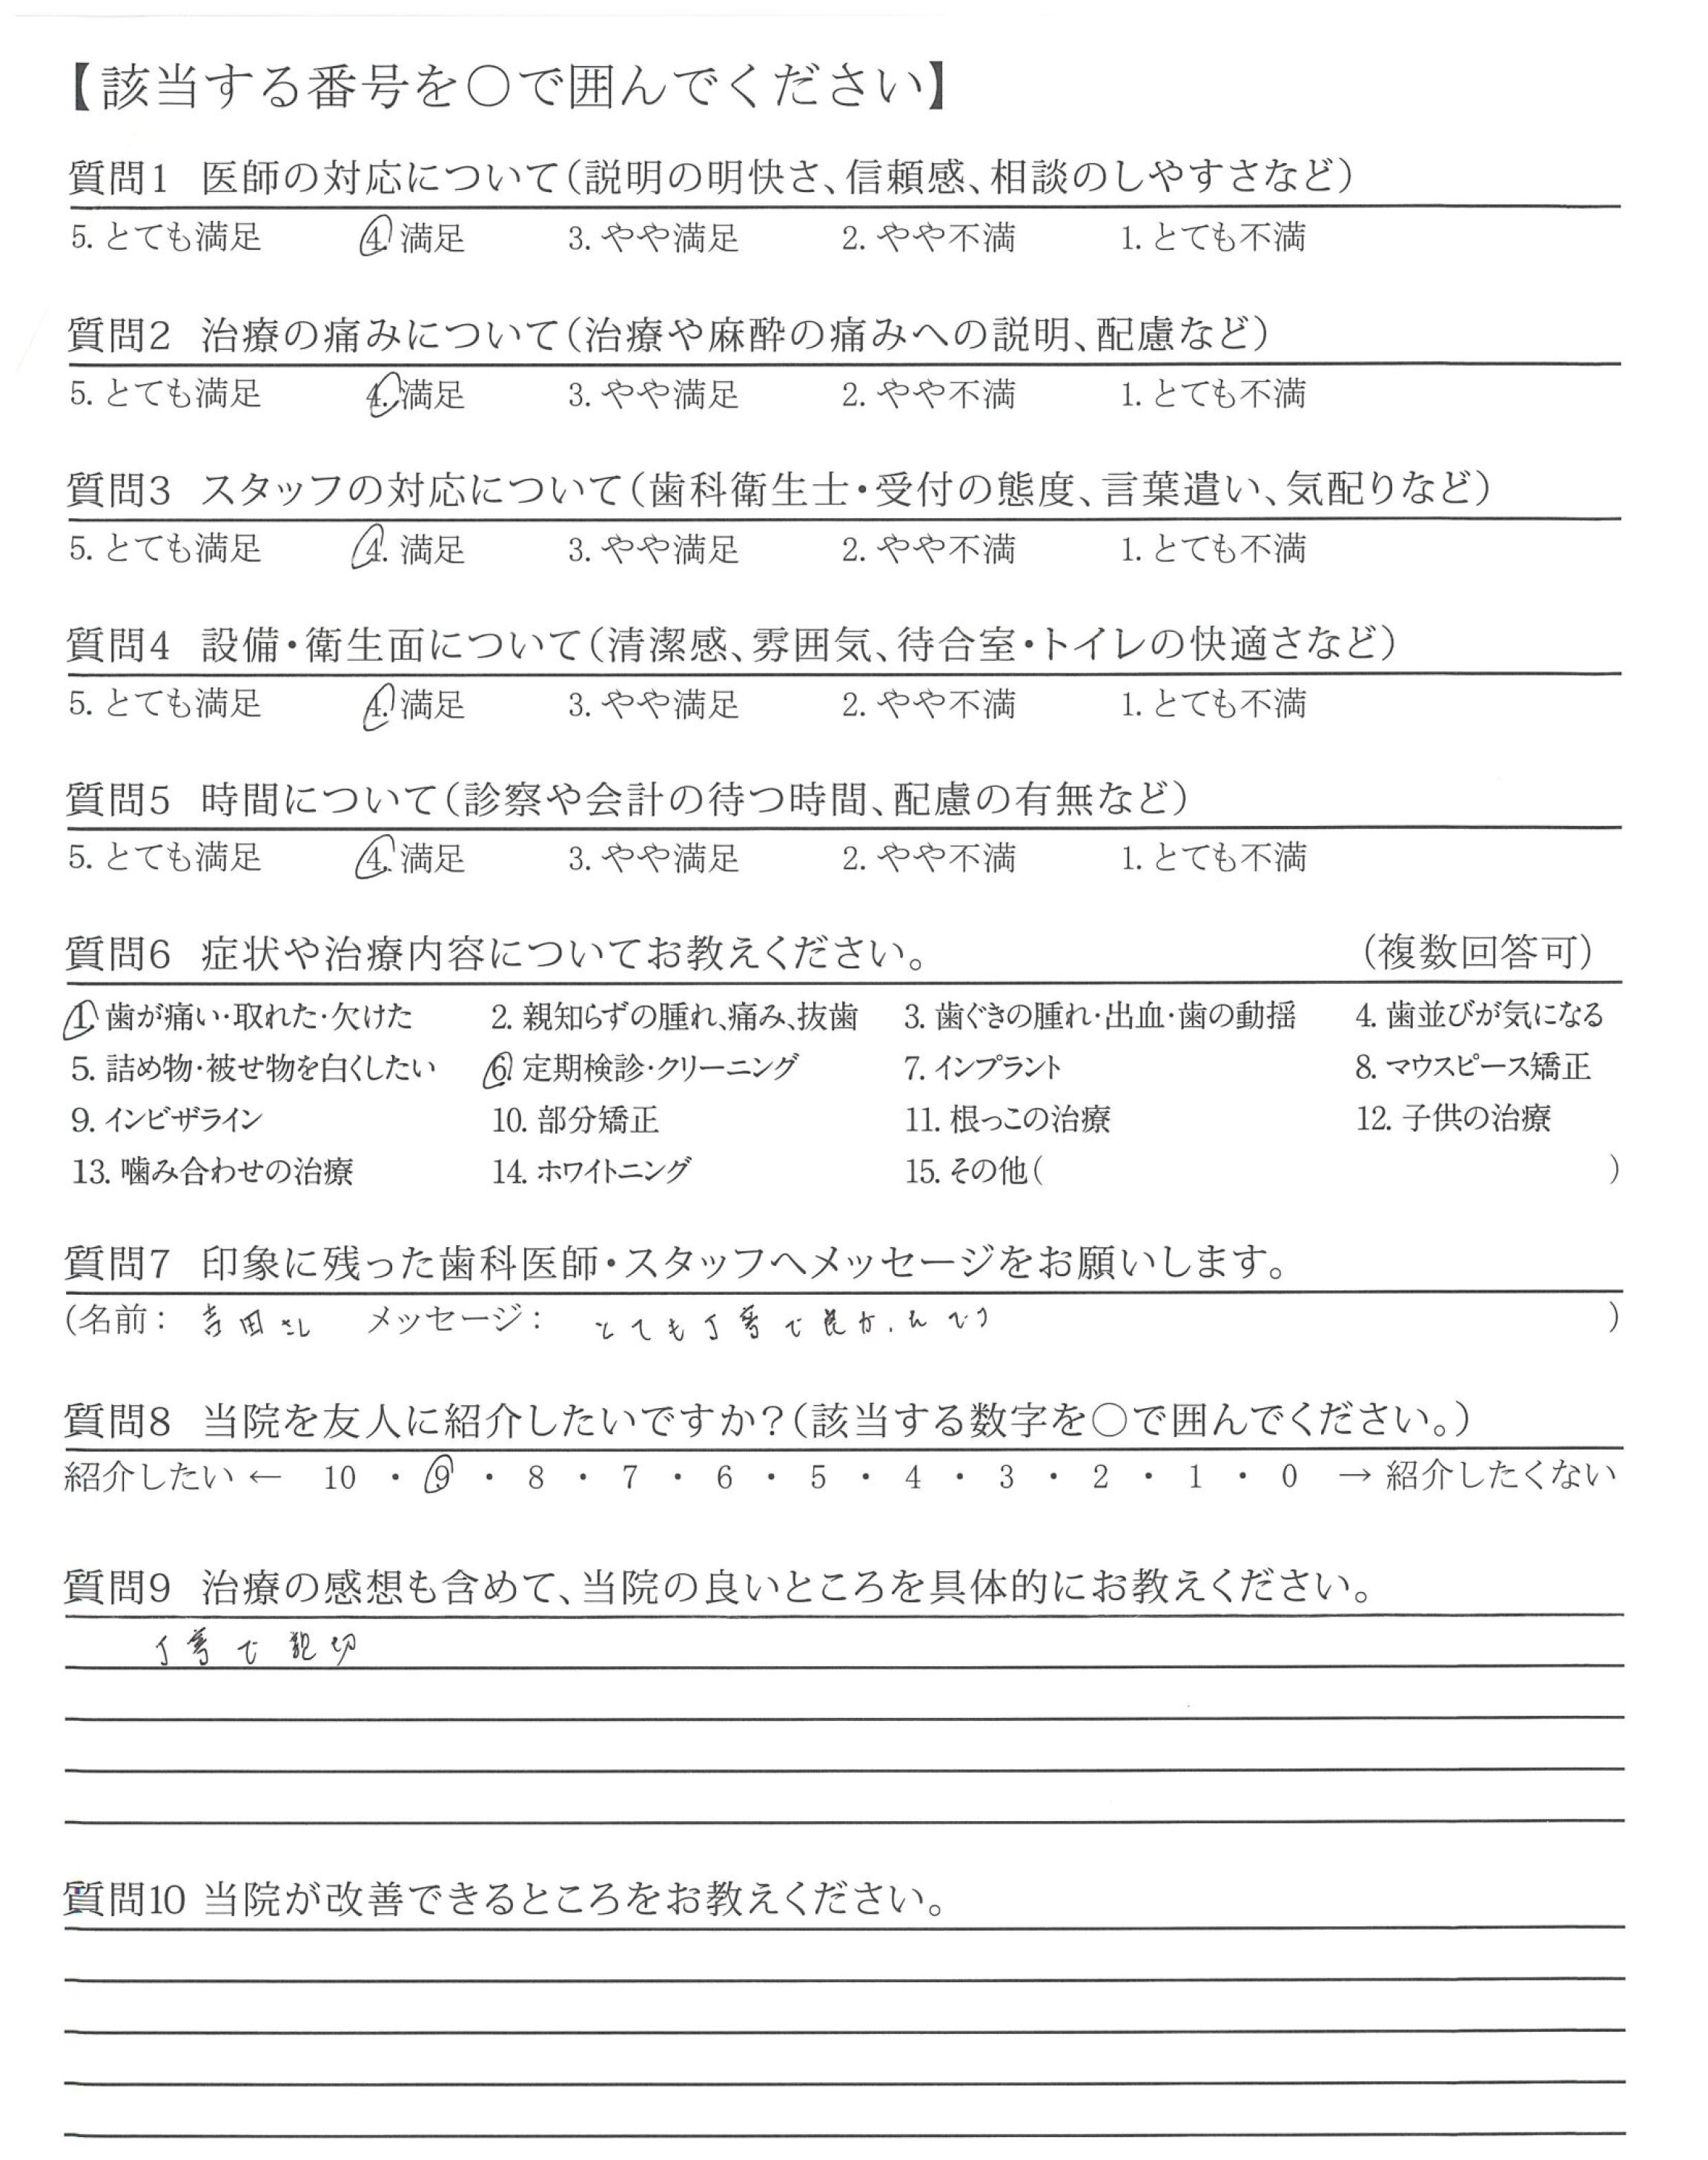 【該当する番号を〇で囲んでください】
質問1 医師の対応について（説明の明快さ、信頼感、相談のしやすさなど）
5. とても満足 4. 満足 3. やや満足 2. やや不満 1. とても不満
質問2 治療の痛みについて（治療や麻酔の痛みへの説明、配慮など）
5. とても満足 4. 満足 3. やや満足 2. やや不満 1. とても不満
質問3 スタッフの対応について（歯科衛生士・受付の態度、言葉遣い、気配りなど）
5. とても満足 4. 満足 3. やや満足 2. やや不満 1. とても不満
質問4 設備・衛生面について（清潔感、雰囲気、待合室・トイレの快適さなど）
5. とても満足 4. 満足 3. やや満足 2. やや不満 1. とても不満
質問5 時間について（診察や会計の待つ時間、配慮の有無など）
5. とても満足 4. 満足 3. やや満足 2. やや不満 1. とても不満
質問6 症状や治療内容についてお教えください。 （複数回答可）
1. 歯が痛い・取れた・欠けた 2. 親知らずの腫れ、痛み、抜歯 3. 歯ぐきの腫れ・出血・歯の動揺 4. 歯並びが気になる
5. 詰め物・被せ物を白くしたい 6. 定期検診・クリーニング 7. インプラント 8. マウスピース矯正
9. インビザライン 10. 部分矯正 11. 根っこの治療 12. 子供の治療
13. 噛み合わせの治療 14. ホワイトニング 15. その他（ ）
質問7 印象に残った歯科医師・スタッフへメッセージをお願いします。
（名前： 吉田さん メッセージ： とても丁寧で良かったです ）
質問8 当院を友人に紹介したいですか？（該当する数字を〇で囲んでください。）
紹介したい ← 10 ・ 9 ・ 8 ・ 7 ・ 6 ・ 5 ・ 4 ・ 3 ・ 2 ・ 1 ・ 0 → 紹介したくない
質問9 治療の感想も含めて、当院の良いところを具体的にお教えください。
丁寧で親切
質問10 当院が改善できるところをお教えください。